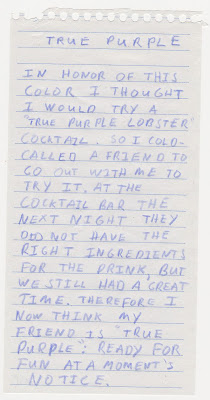 TRUE PURPLE
IN HONOR OF THIS
COLOR I THOUGHT
I WOULD TRY A
"TRUE PURPLE LOBSTER"
COCKTAIL. SO I COLD-
CALLED A FRIEND TO
GO OUT WITH ME TO
TRY IT. AT THE
COCKTAIL BAR THE
NEXT NIGHT THEY
DID NOT HAVE THE
RIGHT INGREDIENTS
FOR THE DRINK, BUT
WE STILL HAD A GREAT
TIME. THEREFORE I
NOW THINK MY
FRIEND IS "TRUE
PURPLE": READY FOR
FUN AT A MOMENT'S
NOTICE.